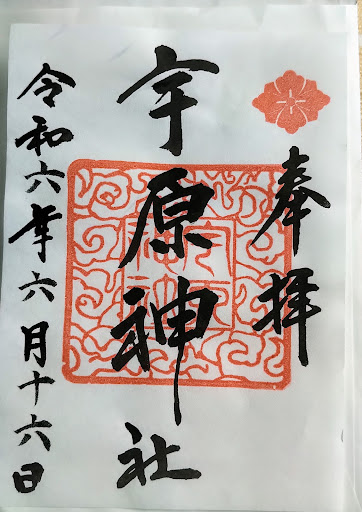 奉拝
宇原神社
令和六年六月十六日